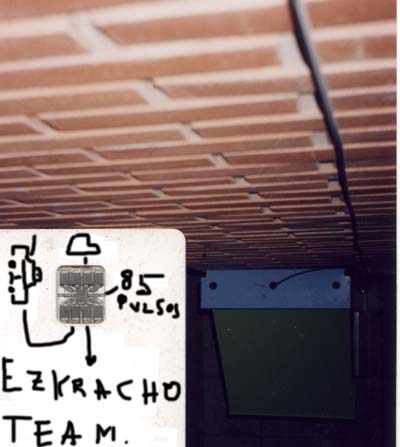 85
PULSOS
EZKRACHO
TEAM.